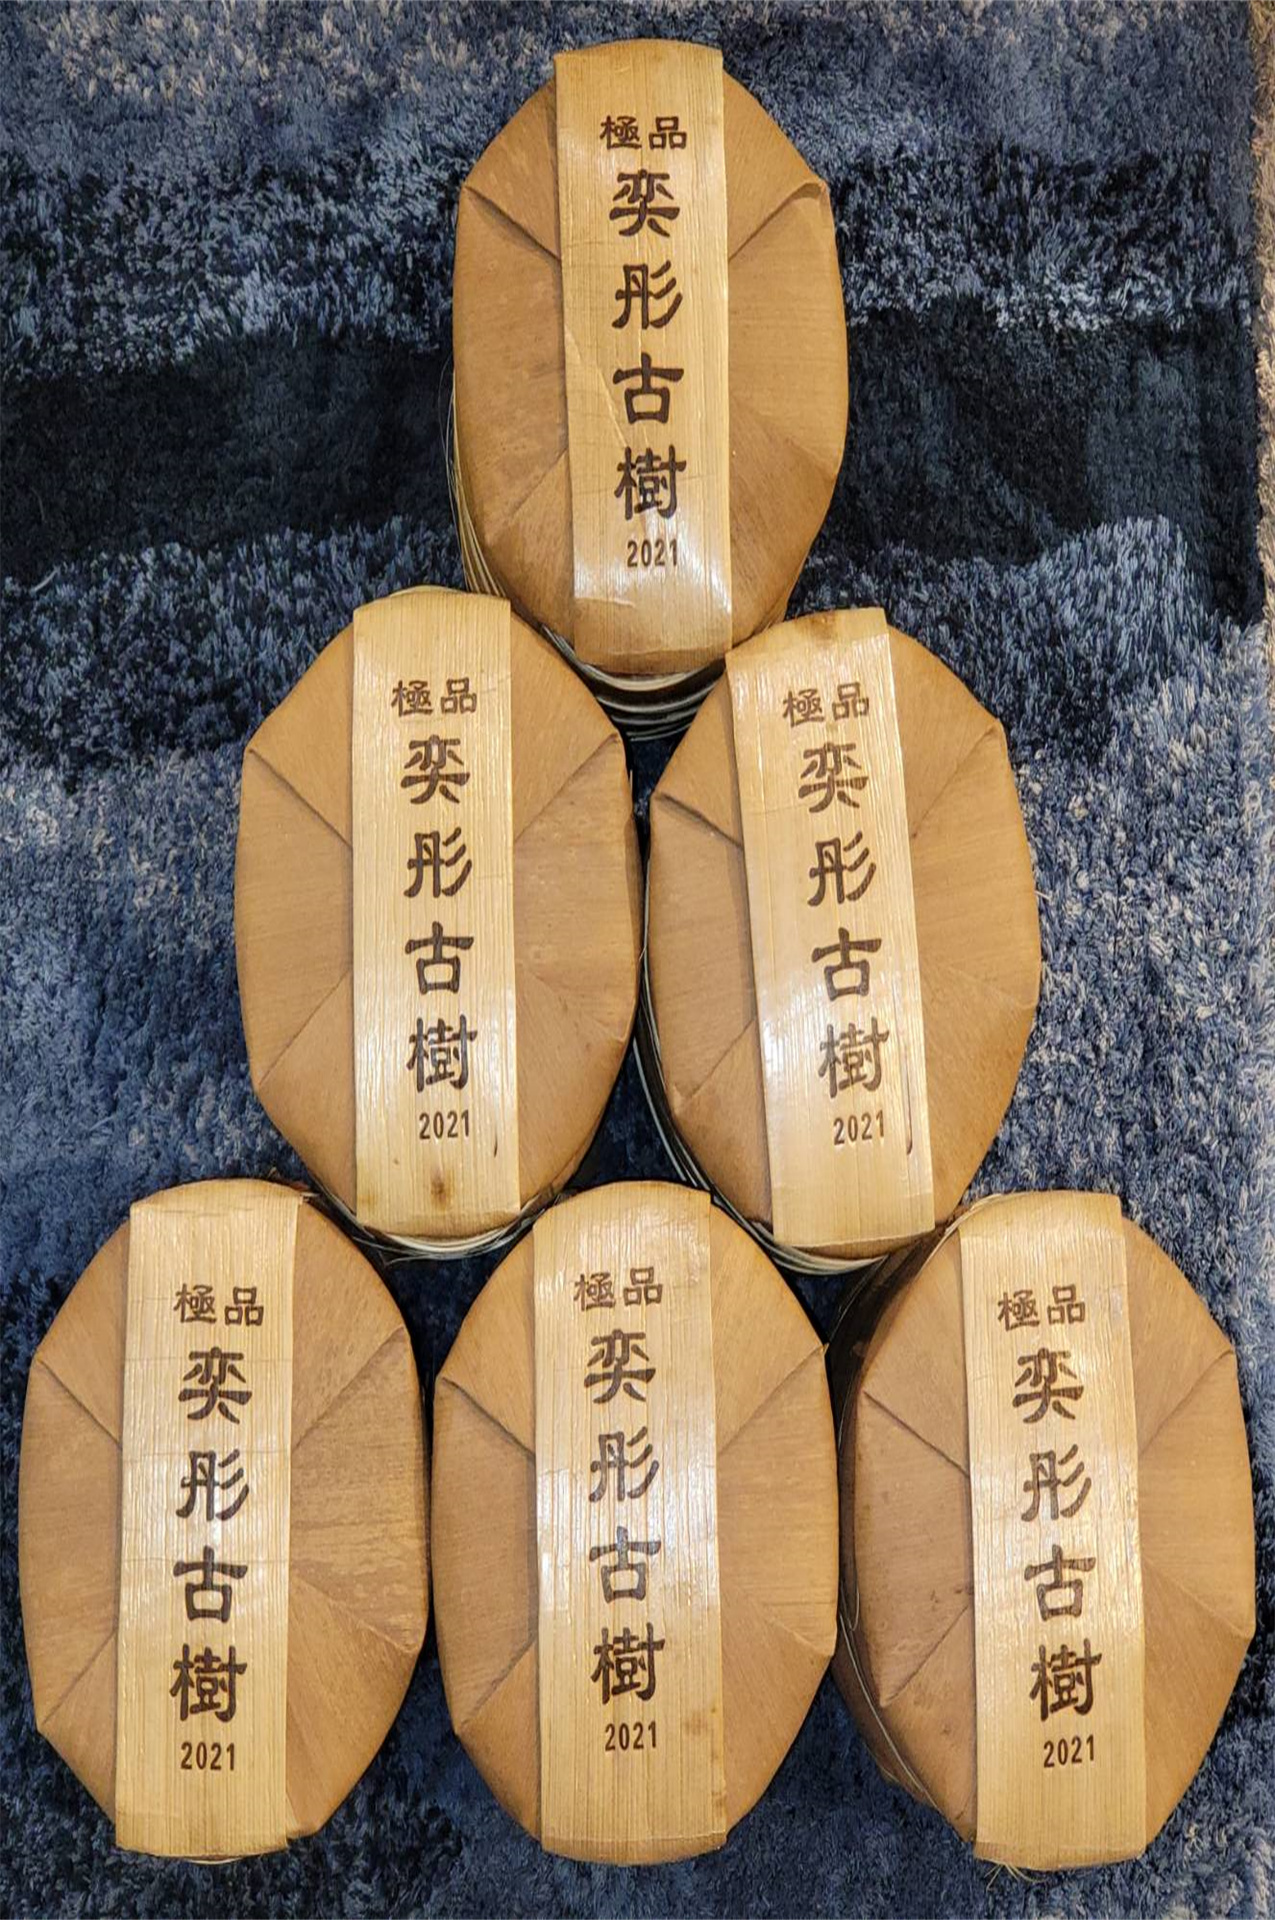 極品
奕彤古樹
2021
極品
奕彤古樹
2021
極品
奕彤古樹
2021
極品
奕彤古樹
2021
極品
奕彤古樹
2021
極品
奕彤古樹
2021